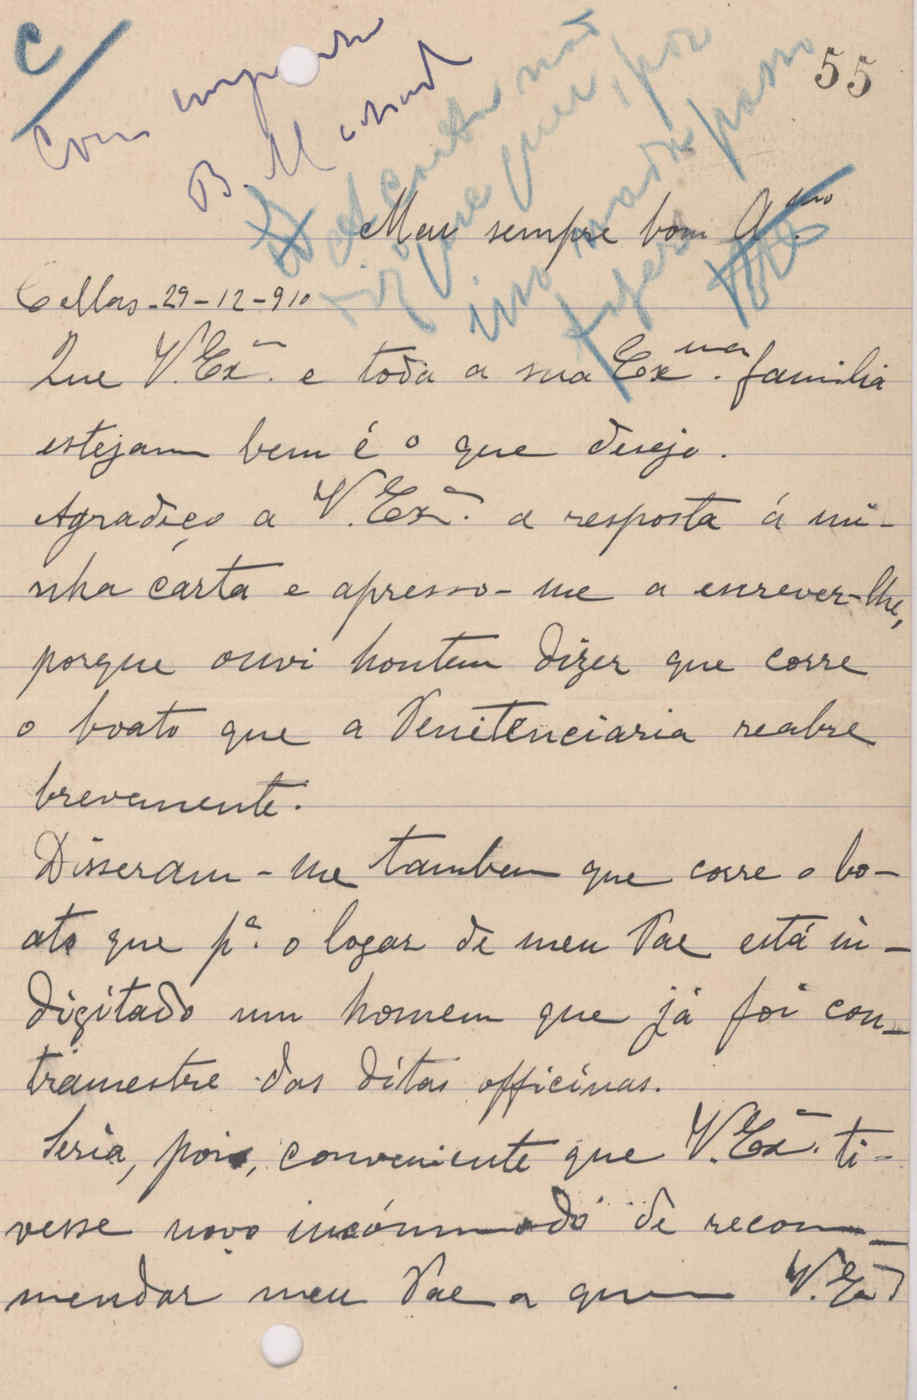 C
55
Com
B. Machado
não
que quer, por
isso nada posso
fazer
Meu sempre bom Am.º
Cellas - 29 - 12 - 910
Que V. Exª. e toda a sua Exma. familia
estejam bem é o que desejo.
Agradeço a V. Exª. a resposta á mi-
nha carta e apresso-me a escrever-lhe,
porque ouvi hontem dizer que corre
o boato que a Penitenciaria reabre
brevemente.
Disseram-me tambem que corre o bo-
ato que pª. o logar de meu Pae está in-
digitado um homem que já foi con-
tramestre das ditas officinas.
Seria, pois, conveniente que V. Exª. ti-
vesse novo incómmodo de recom-
mendar meu Pae a quem V. Exª